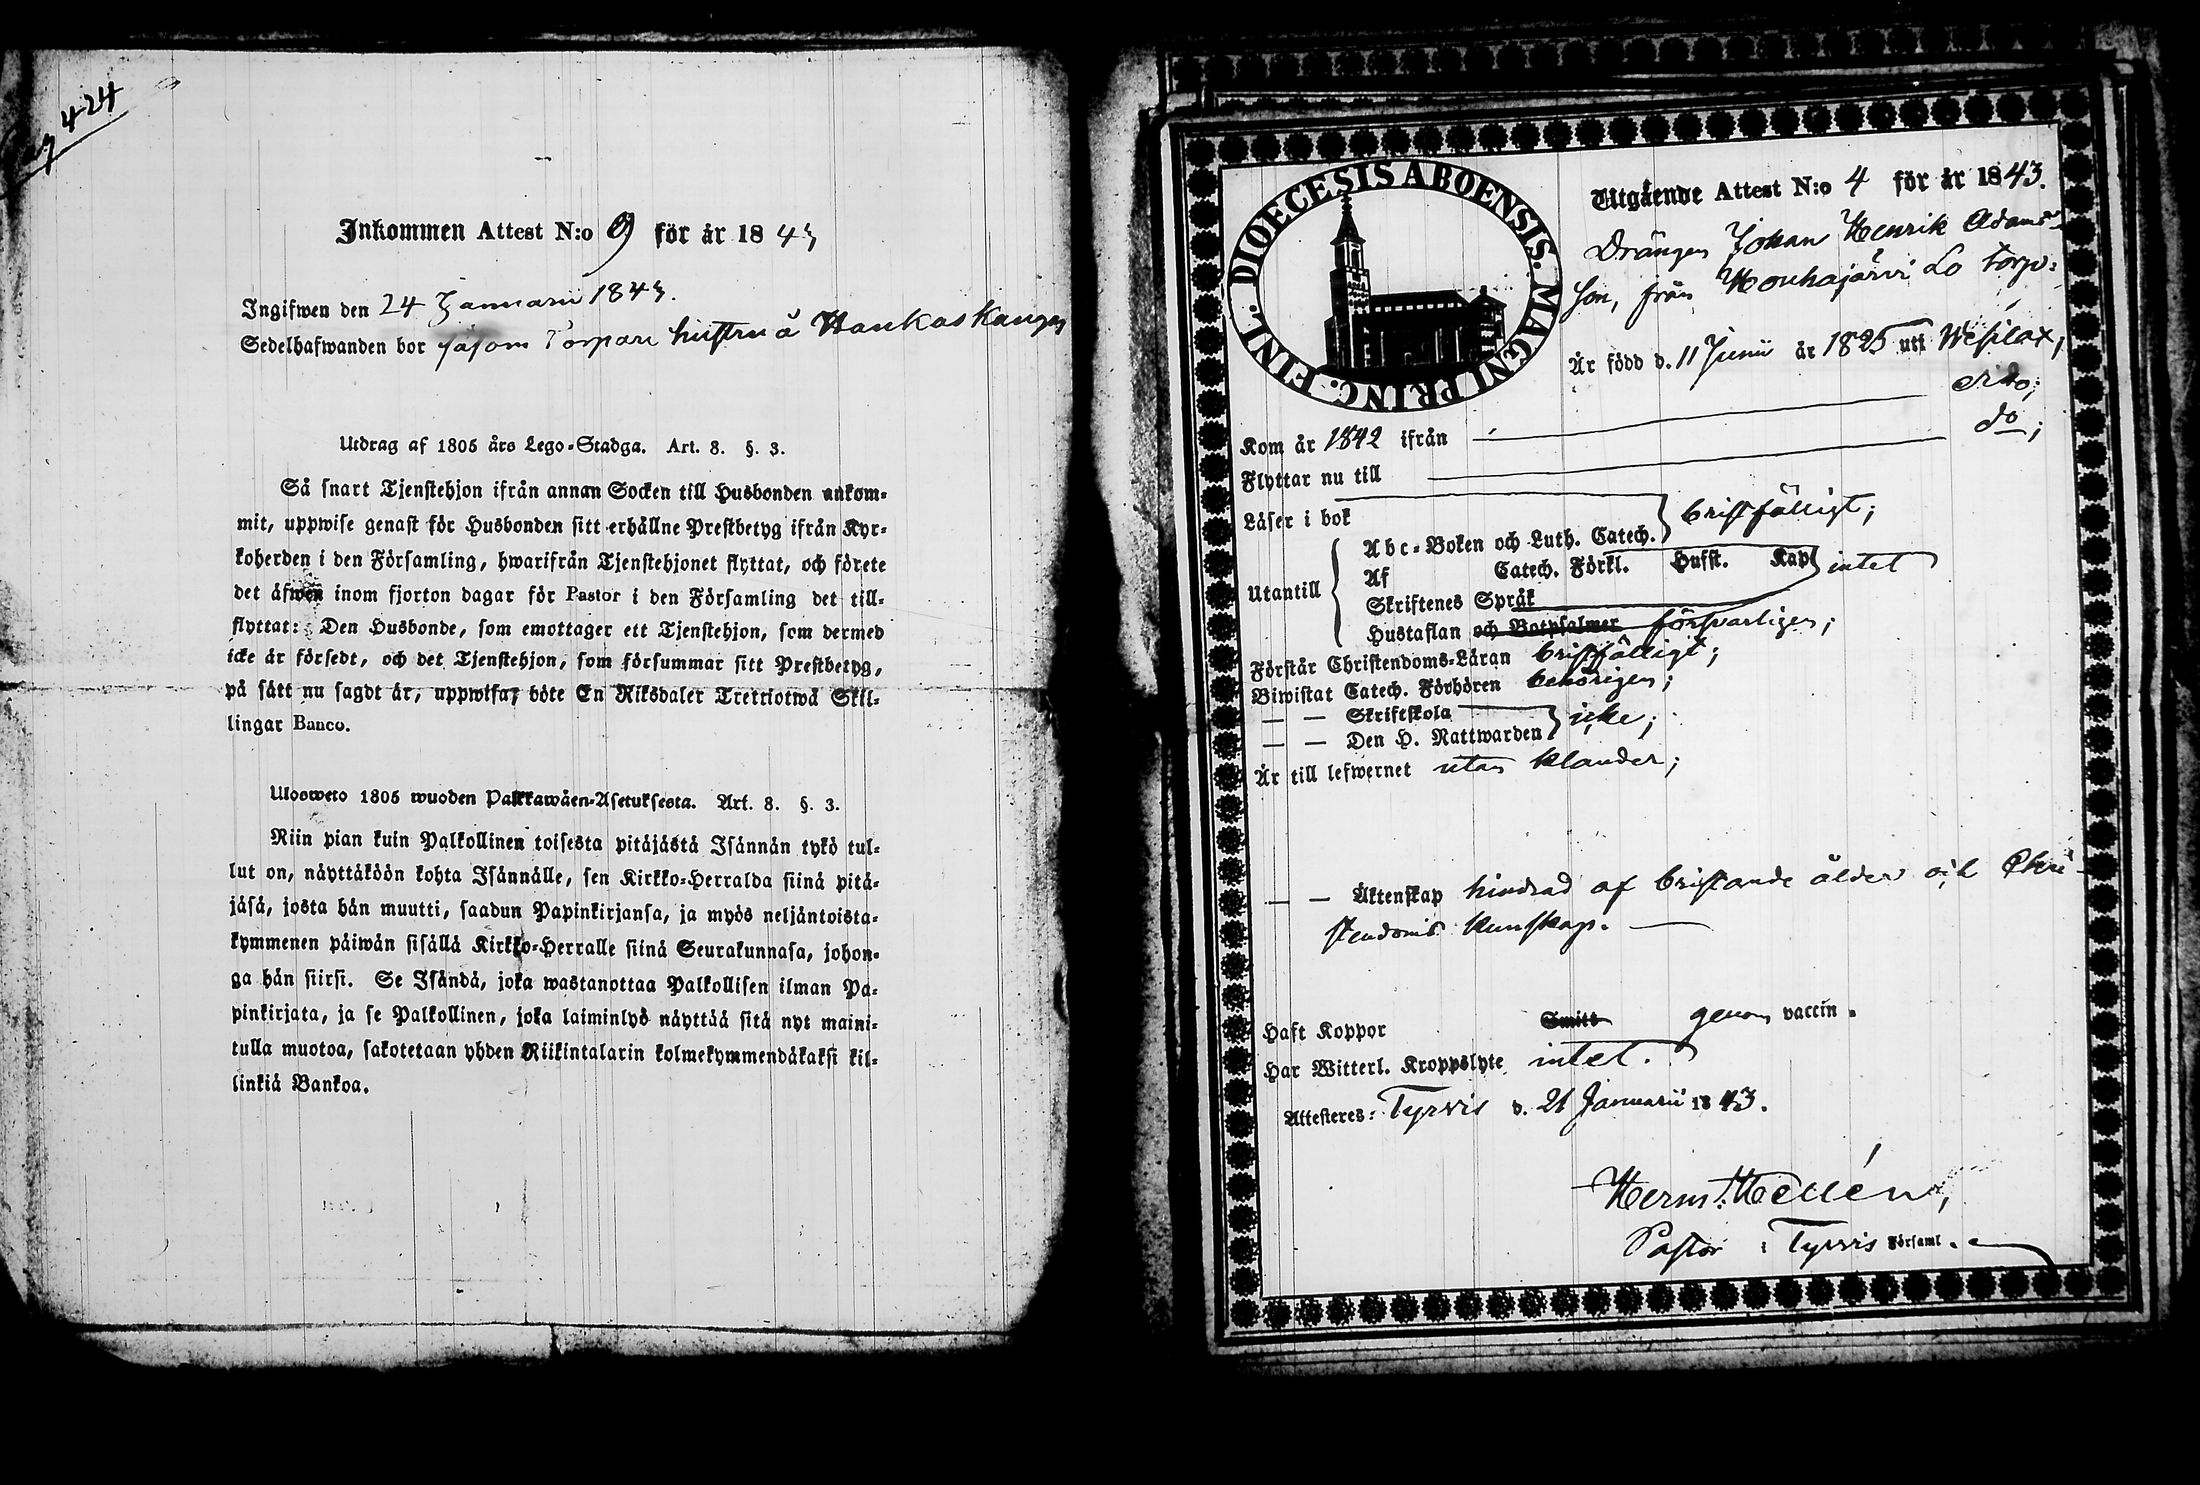 424
Inkommen Attest N:o 9 för år 1843
Ingifwen den 24 Januarii 1843.
Sedelhafwanden bor såsom Torpare hustru å Haukaskangas
Utdrag af 1805 års Lego-Stadga. Art. 8. §. 3.
Så snart Tjenstehjon ifrån annan Socken till Husbonden ankom-
mit, uppwise genast för Husbonden sitt erhållne Prestbetyg ifrån Kyr-
koherden i den Församling, hwarifrån Tjenstehjonet flyttat, och förete
det äfwen inom fjorton dagar för Pastor i den Församling det till-
flyttat: Den Husbonde, som emottager ett Tjenstehjon, som dermed
icke är försedt, och det Tjenstehjon, som försummar sitt Prestbetyg,
på sätt nu sagdt är, uppwisa, böte En Riksdaler Trettiotwå Skil-
lingar Banco.
Ulosweto 1805 wuoden Palkkawäen-Asetuksesta. Art. 8. §. 3.
Niin pian kuin Palkollinen toisesta pitäjästä Isännän tykö tul-
lut on, näyttäköön kohta Isännälle, sen Kirkko-Herralda siinä pitä-
jäsä, josta hän muutti, saadun Papinkirjansa, ja myös neljäntoista-
kymmenen päiwän sisällä Kirkko-Herralle siinä Seurakunnasa, johon-
ga hän siirsi. Se Isändä, joka wastanottaa Palkollisen ilman Pa-
pinkirjata, ja se Palkollinen, joka laiminlyö näyttää sitä nyt maini-
tulla muotoa, sakotetaan yhden Riikintalarin kolmekymmendäkaksi kil-
linkiä Bankoa.
DIOECESIS ABOENSIS. MAGNI PRINC. FINL.
Utgående Attest N:o 4 för år 1843.
Drängen Johan Henrik Adams-
son, från Houhajärvi Lo torp:
Är född d. 11 Junii år 1825 uti Wesilax,
Kom år 1842 ifrån dito;
Flyttar nu till do;
Läser i bok bristfälligt;
Utantill
Abc-Boken och Luth. Catech.
Af Catech. Förkl. Hufst. Kap intet
Skriftenes Språk
Hustaflan och Botpsalmer försvarligen;
Förstår Christendoms-Läran bristfälligt;
Biwistat Catech. Förhören behörigen;
— — Skriftskola
— — Den H. Nattwarden icke;
Är till lefwernet utan klander;
— — Äktenskap hindrad af bristande ålder och Chri-
stendoms kunskap.
Haft Koppor Smitt genom vaccin.
Har Witterl. Kroppslyte intet.
Attesteres: Tyrvis d. 21 Januarii 1843.
Herm: Hellén,
Pastor i Tyrvis Församl.